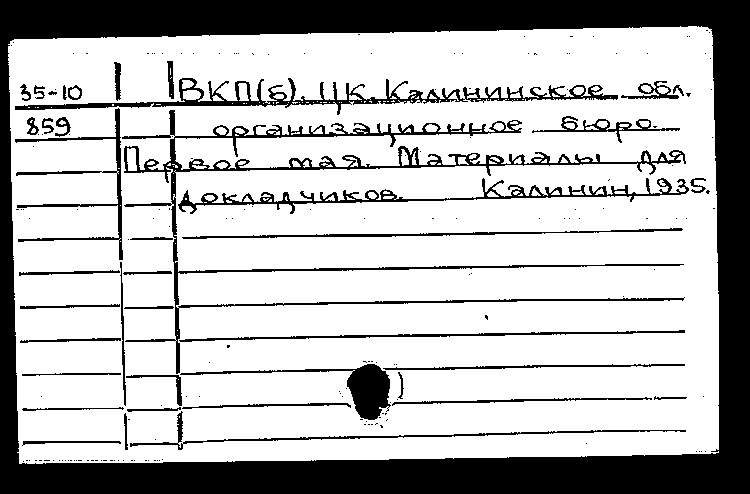 35-10 ВКП(б). ЦК. Калининское обл.
859 организационное бюро.
Первое мая. Материалы для
докладчиков. Калинин, 1935.